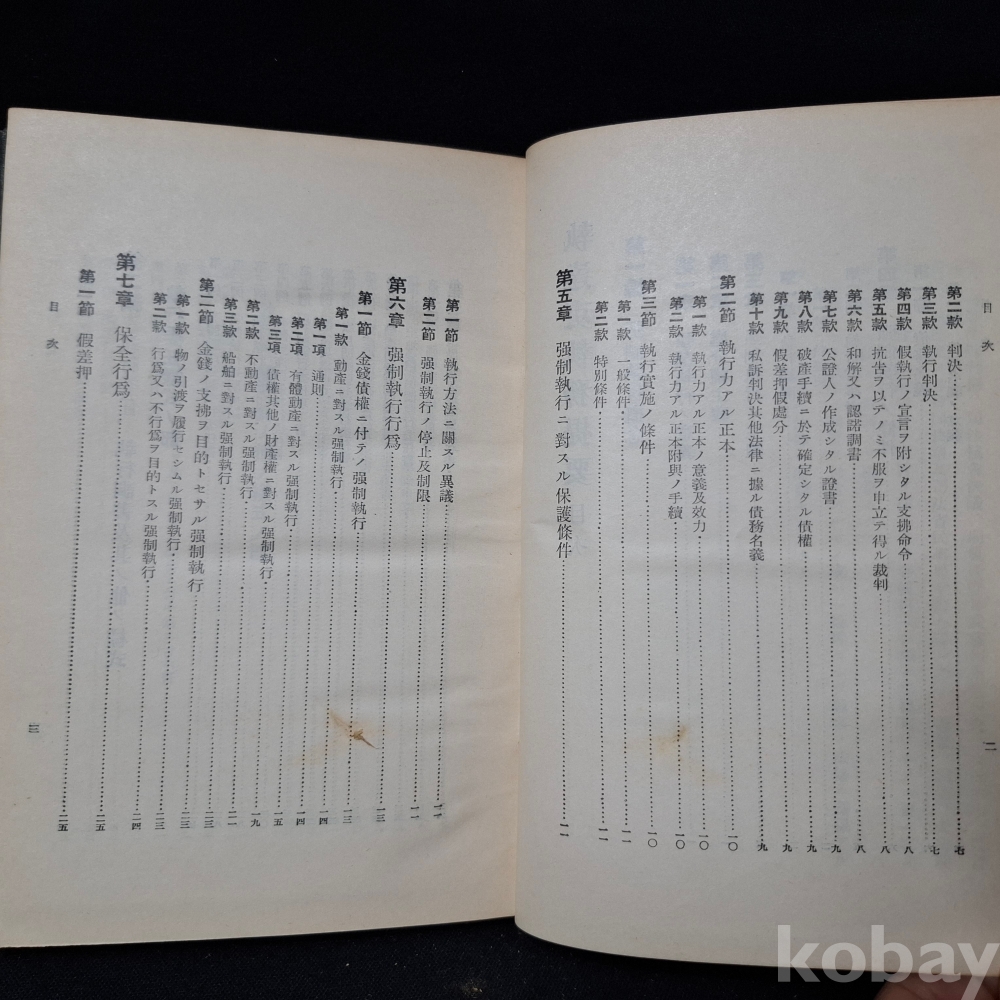 目次
二
第二款 判決……七
第三款 執行判決……七
第四款 假執行ノ宣言ヲ附シタル支拂命令……八
第五款 抗吿ヲ以テノミ不服ヲ申立テ得ル裁判……八
第六款 和解又ハ認諾調書……八
第七款 公證人ノ作成シタル證書……九
第八款 破產手續ニ於テ確定シタル債權……九
第九款 假差押假處分……九
第十款 私訴判決其他法律ニ據ル債務名義……九
第二節 執行力アル正本……一〇
第一款 執行力アル正本ノ意義及效力……一〇
第二款 執行力アル正本附與ノ手續……一〇
第三節 執行實施ノ條件……一〇
第一款 一般條件……一一
第二款 特別條件……一一
第五章 强制執行ニ對スル保護條件……一一
第一節 執行方法ニ關スル異議
第二節 强制執行ノ停止及制限
第六章 强制執行行爲……一三
第一節 金錢債權ニ付テノ强制執行……一三
第一款 動產ニ對スル强制執行……一三
第一項 通則……一四
第二項 有體動產ニ對スル强制執行……一四
第三項 債權其他ノ財產權ニ對スル强制執行……一五
第二款 不動產ニ對スル强制執行……一九
第三款 船舶ニ對スル强制執行……二一
第二節 金錢ノ支拂ヲ目的トセサル强制執行……二三
第一款 物ノ引渡ヲ履行セシムル强制執行……二三
第二款 行爲又ハ不行爲ヲ目的トスル强制執行……二四
第七章 保全行爲……二五
第一節 假差押……二五
目次
三
kobay